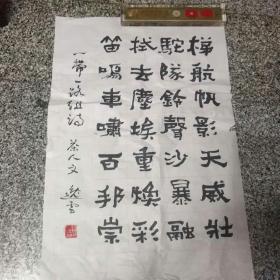 梯航帆影天威壮
駝隊鈴聲沙暴融
拭去塵埃重煥彩
笛鳴車嘯百邦崇
一带一路组诗
茶人文